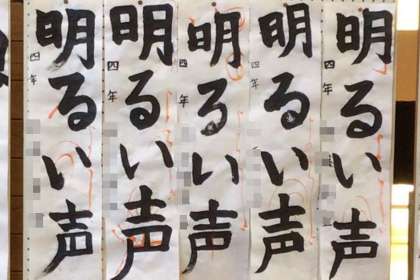 明るい声
四年
明るい声
四年
明るい声
四年
明るい声
四年
明るい声
四年